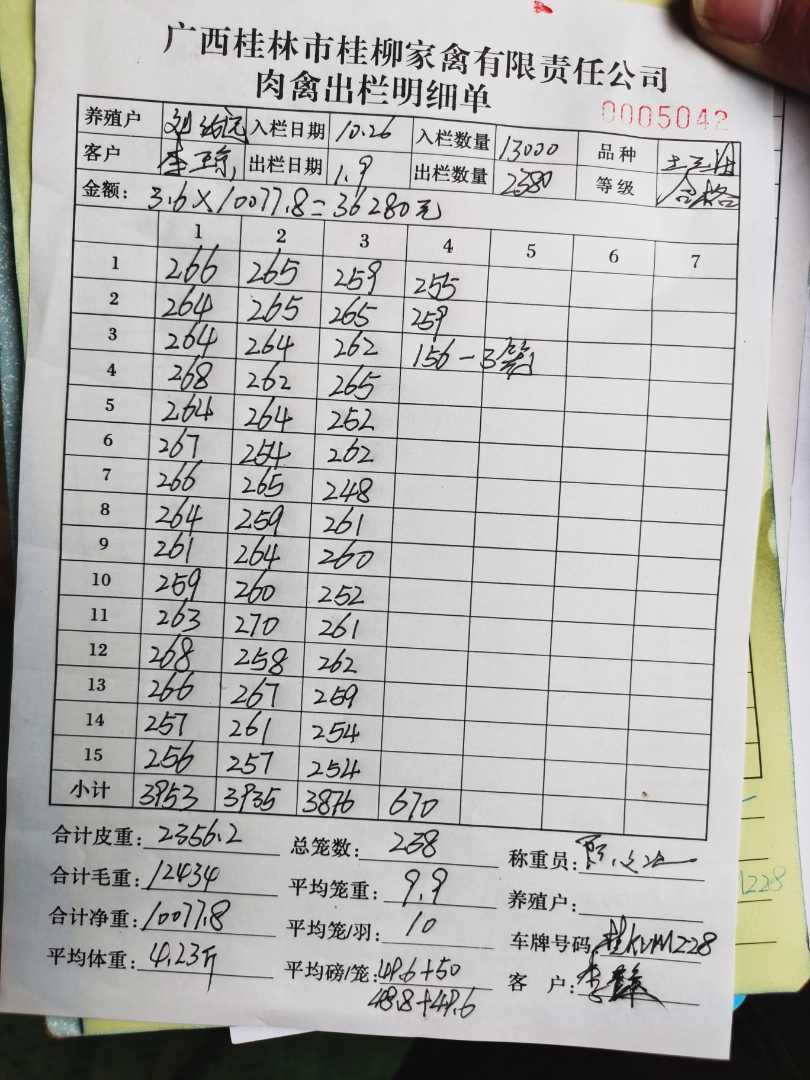 广西桂林市桂柳家禽有限责任公司
肉禽出栏明细单
0005042
养殖户 入栏日期 10.26 入栏数量 13000 品种
客户 出栏日期 1.9 出栏数量 2380 等级 合格
金额: 3.6×10077.8=36280元
1 2 3 4 5 6 7
1 266 265 259 255
2 264 265 265 259
3 264 264 262 156-3笼
4 268 262 265
5 264 264 252
6 267 254 262
7 266 265 248
8 264 259 261
9 261 264 260
10 259 260 252
11 263 270 261
12 268 258 262
13 266 267 259
14 257 261 254
15 256 257 254
小计 3953 3935 3876 670
合计皮重: 2356.2 总笼数: 238 称重员:
合计毛重: 12434 平均笼重: 9.9 养殖户:
合计净重: 10077.8 平均笼/羽: 10 车牌号码: 桂KVM228
平均体重: 4.23斤 平均磅/笼: 49.6+50 客 户: 李
48.8+49.6